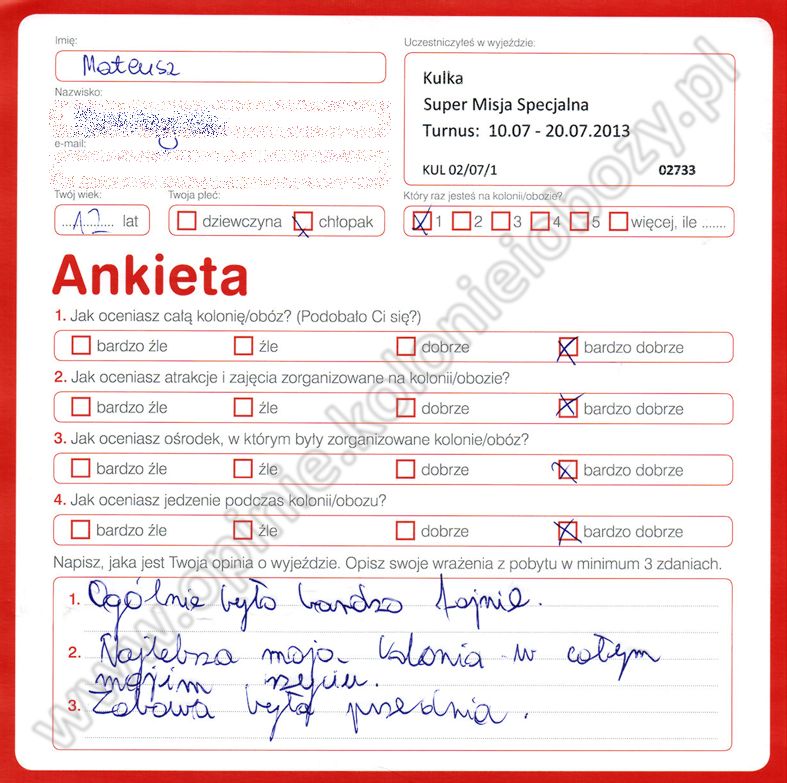 Imię:
Uczestniczyłeś w wyjeździe:
Mateusz
Kulka
Nazwisko:
Super Misja Specjalna
Turnus: 10.07 - 20.07.2013
e-mail:
KUL 02/07/1 02733
Twój wiek: Twoja płeć: Który raz jesteś na kolonii/obozie?
12 lat dziewczyna chłopak 1 2 3 4 5 więcej, ile .......
Ankieta
1. Jak oceniasz całą kolonię/obóz? (Podobało Ci się?)
bardzo źle źle dobrze bardzo dobrze
2. Jak oceniasz atrakcje i zajęcia zorganizowane na kolonii/obozie?
bardzo źle źle dobrze bardzo dobrze
3. Jak oceniasz ośrodek, w którym były zorganizowane kolonie/obóz?
bardzo źle źle dobrze bardzo dobrze
4. Jak oceniasz jedzenie podczas kolonii/obozu?
bardzo źle źle dobrze bardzo dobrze
Napisz, jaka jest Twoja opinia o wyjeździe. Opisz swoje wrażenia z pobytu w minimum 3 zdaniach.
1. Ogólnie było bardzo fajnie.
2. Najlebsza moja kolonia w całym
mojim rzyciu.
3. Zabawa była przednia.
www.opinie.kolonieiobozy.pl